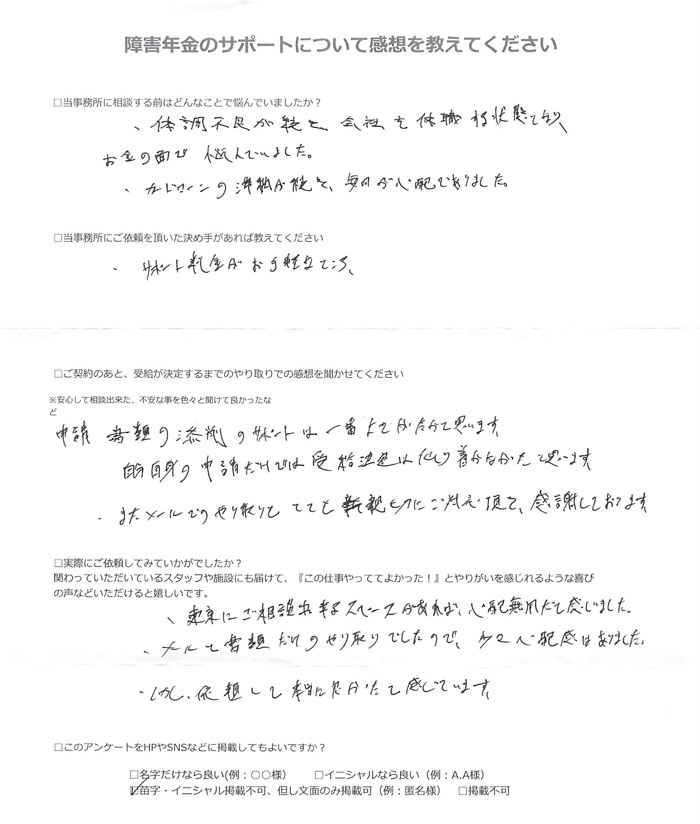 障害年金のサポートについて感想を教えてください
□当事務所に相談する前はどんなことで悩んでいましたか？
、体調不良が続き 会社を休職する状態であり
お金の面で 悩んでいました。
・カードローンの滞納が続き、毎日が心配でありました。
□当事務所にご依頼を頂いた決め手があれば教えてください
・ サポート料金がお手軽なところ、
□ご契約のあと、受給が決定するまでのやり取りでの感想を聞かせてください
※安心して相談出来た、不安な事を色々と聞けて良かったな
ど
申請 書類の添削のサポートは一番よかったと思います
自分自身の申請だけでは受給決定はたどり着かなかったと思います
・またメールでのやり取りも とても 親切にご対応頂き、感謝しております
□実際にご依頼してみていかがでしたか？
関わっていただいているスタッフや施設にも届けて、『この仕事やっててよかった！』とやりがいを感じれるような喜び
の声などいただけると嬉しいです。
、東京にご相談出来るスペースがあれば、心配無用だと感じました。
・メールと書類だけのやり取りでしたので、少々心配感はありました、
・しかし、依頼して本当に良かったと感じています、
□このアンケートをHPやSNSなどに掲載してもよいですか？
□名字だけなら良い(例：〇〇様) □イニシャルなら良い（例：A.A様）
☑苗字・イニシャル掲載不可、但し文面のみ掲載可（例：匿名様） □掲載不可